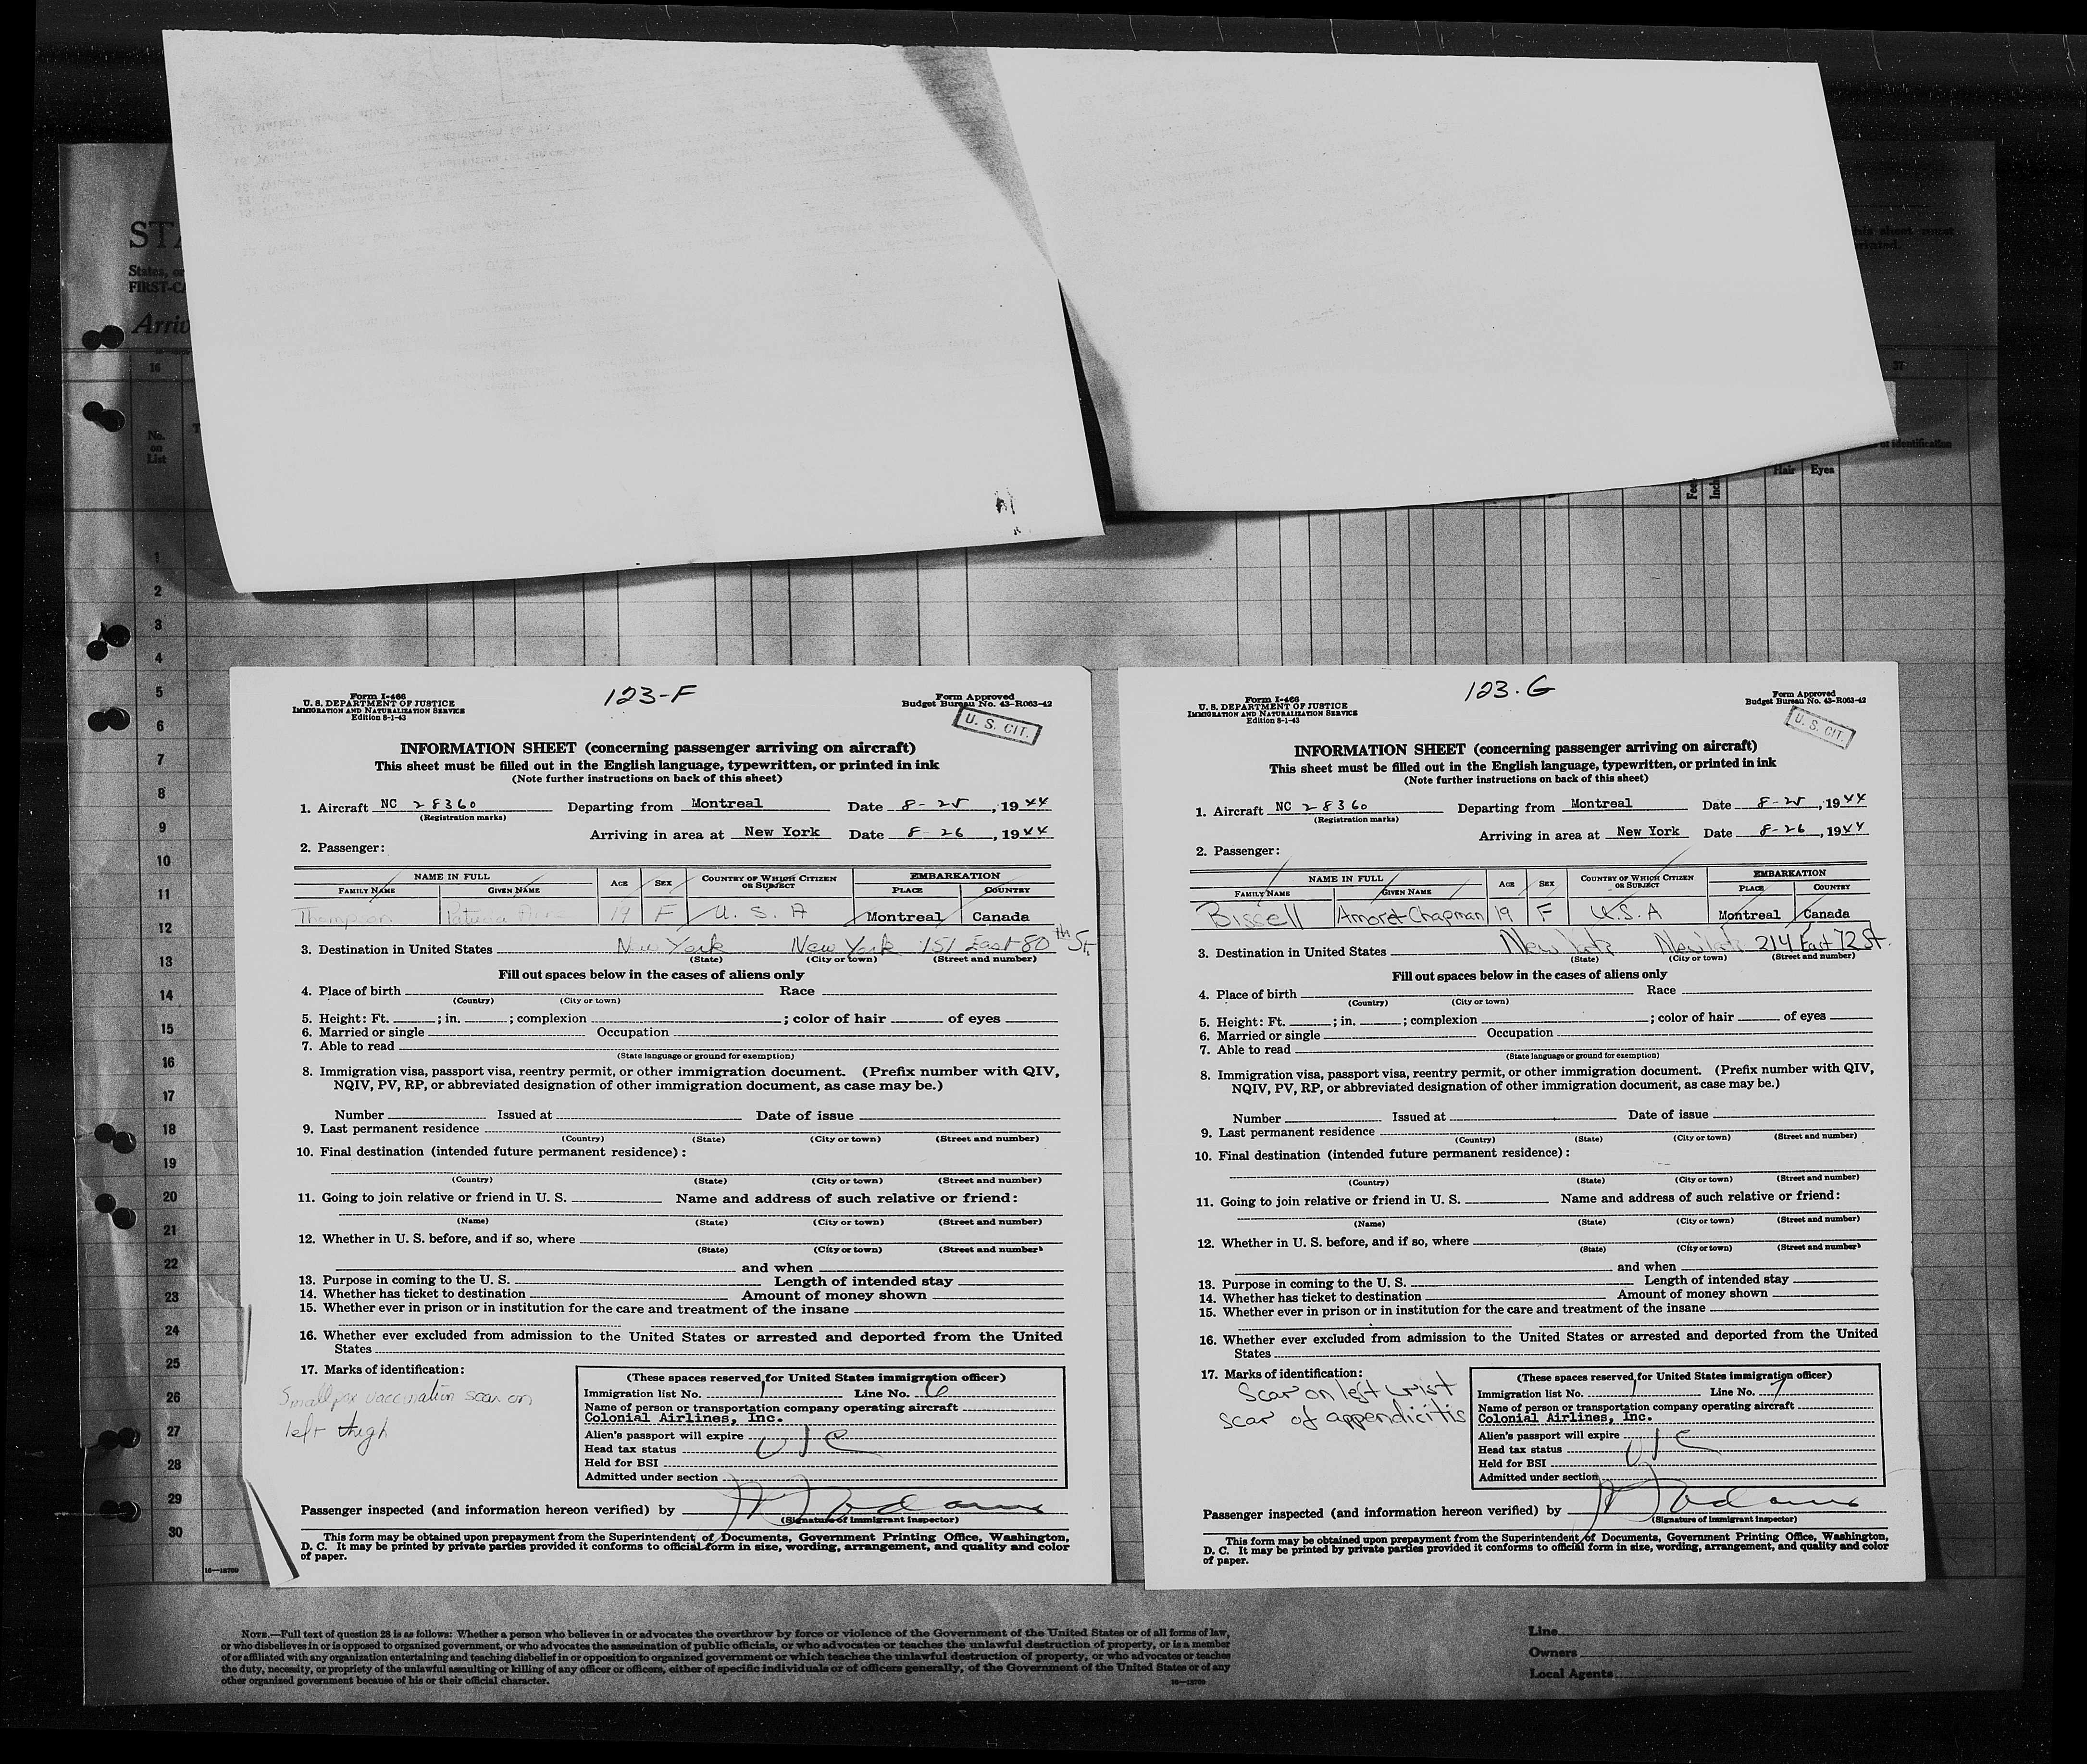 STA
States, or
FIRST-CA
Arriv
this sheet must
16
37
No.
on
List
of identification
Hair Eyes
Fee
Inch
1
2
3
4
5
6
7
8
9
10
11
12
13
14
15
16
17
18
19
20
21
22
23
24
25
26
27
28
29
30
Form I-466
U. S. DEPARTMENT OF JUSTICE
IMMIGRATION AND NATURALIZATION SERVICE
Edition 8-1-43
123-F
Form Approved
Budget Bureau No. 43-R063-42
U. S. CIT.
INFORMATION SHEET (concerning passenger arriving on aircraft)
This sheet must be filled out in the English language, typewritten, or printed in ink
(Note further instructions on back of this sheet)
1. Aircraft NC 28360 Departing from Montreal Date 8-25, 1944
(Registration marks)
Arriving in area at New York Date 8-26, 1944
2. Passenger:
NAME IN FULL AGE SEX COUNTRY OF WHICH CITIZEN OR SUBJECT EMBARKATION
FAMILY NAME GIVEN NAME PLACE COUNTRY
Thompson Patricia Ann 19 F U. S. A Montreal Canada
3. Destination in United States New York New York 151 East 80th St.
(State) (City or town) (Street and number)
Fill out spaces below in the cases of aliens only
4. Place of birth Race
(Country) (City or town)
5. Height: Ft. ; in. ; complexion ; color of hair of eyes
6. Married or single Occupation
7. Able to read
(State language or ground for exemption)
8. Immigration visa, passport visa, reentry permit, or other immigration document. (Prefix number with QIV,
NQIV, PV, RP, or abbreviated designation of other immigration document, as case may be.)
Number Issued at Date of issue
9. Last permanent residence
(Country) (State) (City or town) (Street and number)
10. Final destination (intended future permanent residence):
(Country) (State) (City or town) (Street and number)
11. Going to join relative or friend in U. S. Name and address of such relative or friend:
(Name) (State) (City or town) (Street and number)
12. Whether in U. S. before, and if so, where
(State) (City or town) (Street and number)
and when
13. Purpose in coming to the U. S. Length of intended stay
14. Whether has ticket to destination Amount of money shown
15. Whether ever in prison or in institution for the care and treatment of the insane
16. Whether ever excluded from admission to the United States or arrested and deported from the United
States
17. Marks of identification:
Smallpox vaccination scar on
left thigh
(These spaces reserved for United States immigration officer)
Immigration list No. 1 Line No. 6
Name of person or transportation company operating aircraft
Colonial Airlines, Inc.
Alien's passport will expire
Head tax status USC
Held for BSI
Admitted under section
Passenger inspected (and information hereon verified) by
(Signature of Immigrant Inspector)
This form may be obtained upon prepayment from the Superintendent of Documents, Government Printing Office, Washington,
D. C. It may be printed by private parties provided it conforms to official form in size, wording, arrangement, and quality and color
of paper.
16—18709
Form I-466
U. S. DEPARTMENT OF JUSTICE
IMMIGRATION AND NATURALIZATION SERVICE
Edition 8-1-43
123. G
Form Approved
Budget Bureau No. 43-R063-42
U. S. CIT.
INFORMATION SHEET (concerning passenger arriving on aircraft)
This sheet must be filled out in the English language, typewritten, or printed in ink
(Note further instructions on back of this sheet)
1. Aircraft NC 28360 Departing from Montreal Date 8-25, 1944
(Registration marks)
Arriving in area at New York Date 8-26, 1944
2. Passenger:
NAME IN FULL AGE SEX COUNTRY OF WHICH CITIZEN OR SUBJECT EMBARKATION
FAMILY NAME GIVEN NAME PLACE COUNTRY
Bissell Amoret Chapman 19 F U.S.A Montreal Canada
3. Destination in United States New York New York 214 East 72 St.
(State) (City or town) (Street and number)
Fill out spaces below in the cases of aliens only
4. Place of birth Race
(Country) (City or town)
5. Height: Ft. ; in. ; complexion ; color of hair of eyes
6. Married or single Occupation
7. Able to read
(State language or ground for exemption)
8. Immigration visa, passport visa, reentry permit, or other immigration document. (Prefix number with QIV,
NQIV, PV, RP, or abbreviated designation of other immigration document, as case may be.)
Number Issued at Date of issue
9. Last permanent residence
(Country) (State) (City or town) (Street and number)
10. Final destination (intended future permanent residence):
(Country) (State) (City or town) (Street and number)
11. Going to join relative or friend in U. S. Name and address of such relative or friend:
(Name) (State) (City or town) (Street and number)
12. Whether in U. S. before, and if so, where
(State) (City or town) (Street and number)
and when
13. Purpose in coming to the U. S. Length of intended stay
14. Whether has ticket to destination Amount of money shown
15. Whether ever in prison or in institution for the care and treatment of the insane
16. Whether ever excluded from admission to the United States or arrested and deported from the United
States
17. Marks of identification:
Scar on left wrist
scar of appendicitis
(These spaces reserved for United States immigration officer)
Immigration list No. 1 Line No. 7
Name of person or transportation company operating aircraft
Colonial Airlines, Inc.
Alien's passport will expire
Head tax status USC
Held for BSI
Admitted under section
Passenger inspected (and information hereon verified) by
(Signature of Immigrant Inspector)
This form may be obtained upon prepayment from the Superintendent of Documents, Government Printing Office, Washington,
D. C. It may be printed by private parties provided it conforms to official form in size, wording, arrangement, and quality and color
of paper.
NOTE.—Full text of question 28 is as follows: Whether a person who believes in or advocates the overthrow by force or violence of the Government of the United States or of all forms of law,
or who disbelieves in or is opposed to organized government, or who advocates the assassination of public officials, or who advocates or teaches the unlawful destruction of property, or is a member
of or affiliated with any organization entertaining and teaching disbelief in or opposition to organized government or which teaches the unlawful destruction of property, or who advocates or teaches
the duty, necessity, or propriety of the unlawful assaulting or killing of any officer or officers, either of specific individuals or of officers generally, of the Government of the United States or of any
other organized government because of his or their official character.
16—18709
Line
Owners
Local Agents